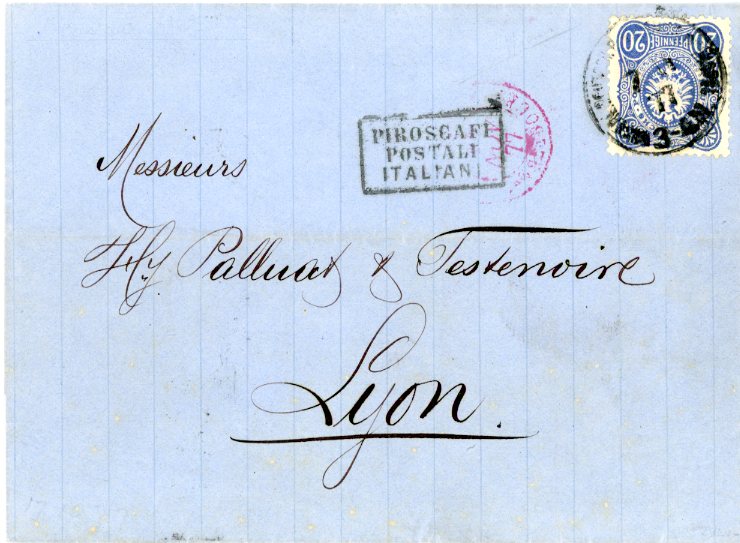 20 PFENNIGE 20
3-4N
PIROSCAFI
POSTALI
ITALIANI
77
Messieurs
Hy. Palluat & Testenoire
Lyon.